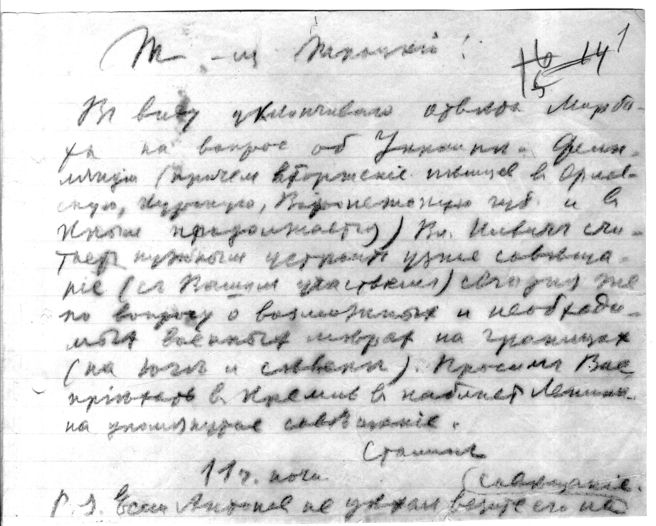 Т-щ Троцкий!
14 1
15
В виду уклончиваго ответа Мирба-
ха на вопрос об Украины и Финл-
ляндии (причем вторжение немцев в Орлов-
скую, Курскую, Воронежскую губ. и в
Крым продолжается) Вл. Ильич счи-
тает нужным устроить узкое совеща-
ние (съ Вашим участием) сегодня же
по вопросу о возможных и необходи-
мых военных мерах на границах
(на юге и севере). Просим Вас
приехать в Кремль в кабинет Ленина
на упомянутое совещание.
Сталин
11 ч. ночи
(совещание.
P.S. Если Антонов не уехал везите его на